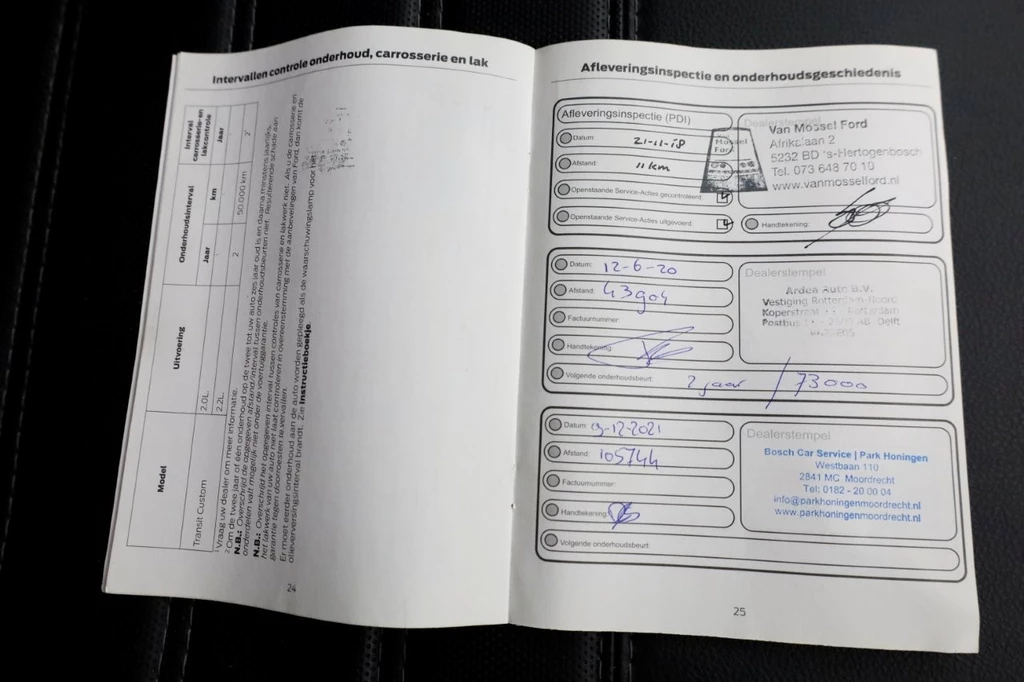 Intervallen controle onderhoud, carrosserie en lak
Model
Uitvoering
Onderhoudsinterval
Interval carrosserie-en lakcontrole
Jaar
km
Jaar
Transit Custom
2.0L
2
50.000 km
2
2.2L
¹ Vraag uw dealer om meer informatie.
² Om de twee jaar of één onderhoud op de twee tot uw auto zes jaar oud is en daarna minstens jaarlijks.
N.B.: Overschrijd de opgegeven afstand/interval tussen onderhoudsbeurten niet. Resulterende schade aan
onderdelen valt mogelijk niet onder de voertuiggarantie.
N.B.: Overschrijd het opgegeven interval tussen controles van carrosserie en lakwerk niet. Als u de carrosserie en
het lakwerk van uw auto niet laat controleren in overeenstemming met de aanbevelingen van Ford, dan komt de
garantie tegen doorroesten te vervallen.
Er moet eerder onderhoud aan de auto worden gepleegd als de waarschuwingslamp voor het
olieverversingsinterval brandt. Zie Instructieboekje.
24
Afleveringsinspectie en onderhoudsgeschiedenis
Afleveringsinspectie (PDI)
Datum: 21-11-18
Afstand: 11 km
Openstaande Service-Acties gecontroleerd:
Openstaande Service-Acties uitgevoerd:
Dealerstempel
Mossel
Ford
Van Mossel Ford
Afrikalaan 2
5232 BD 's-Hertogenbosch
Tel. 073 648 70 10
www.vanmosselford.nl
Handtekening:
Datum: 12-6-20
Afstand: 43904
Factuurnummer:
Handtekening:
Volgende onderhoudsbeurt: 2 jaar / 73000
Dealerstempel
Arden Auto B.V.
Vestiging Rotterdam-Noord
Koperstraat Rotterdam
Postbus AB Delft
Datum: 9-12-2021
Afstand: 105744
Factuurnummer:
Handtekening:
Volgende onderhoudsbeurt:
Dealerstempel
Bosch Car Service | Park Honingen
Westbaan 110
2841 MC Moordrecht
Tel: 0182 - 20 00 04
info@parkhoningenmoordrecht.nl
www.parkhoningenmoordrecht.nl
25